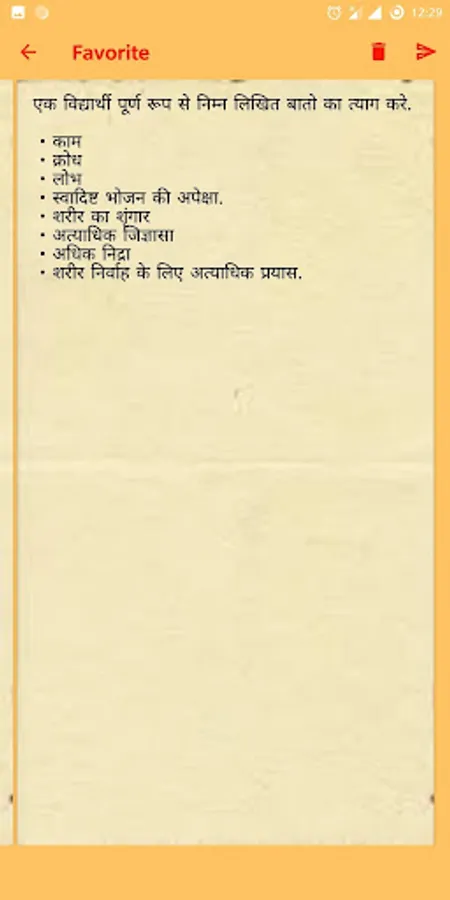 12:29
Favorite
एक विद्यार्थी पूर्ण रूप से निम्न लिखित बातो का त्याग करे.
• काम
• क्रोध
• लोभ
• स्वादिष्ट भोजन की अपेक्षा.
• शरीर का शृंगार
• अत्याधिक जिज्ञासा
• अधिक निद्रा
• शरीर निर्वाह के लिए अत्याधिक प्रयास.